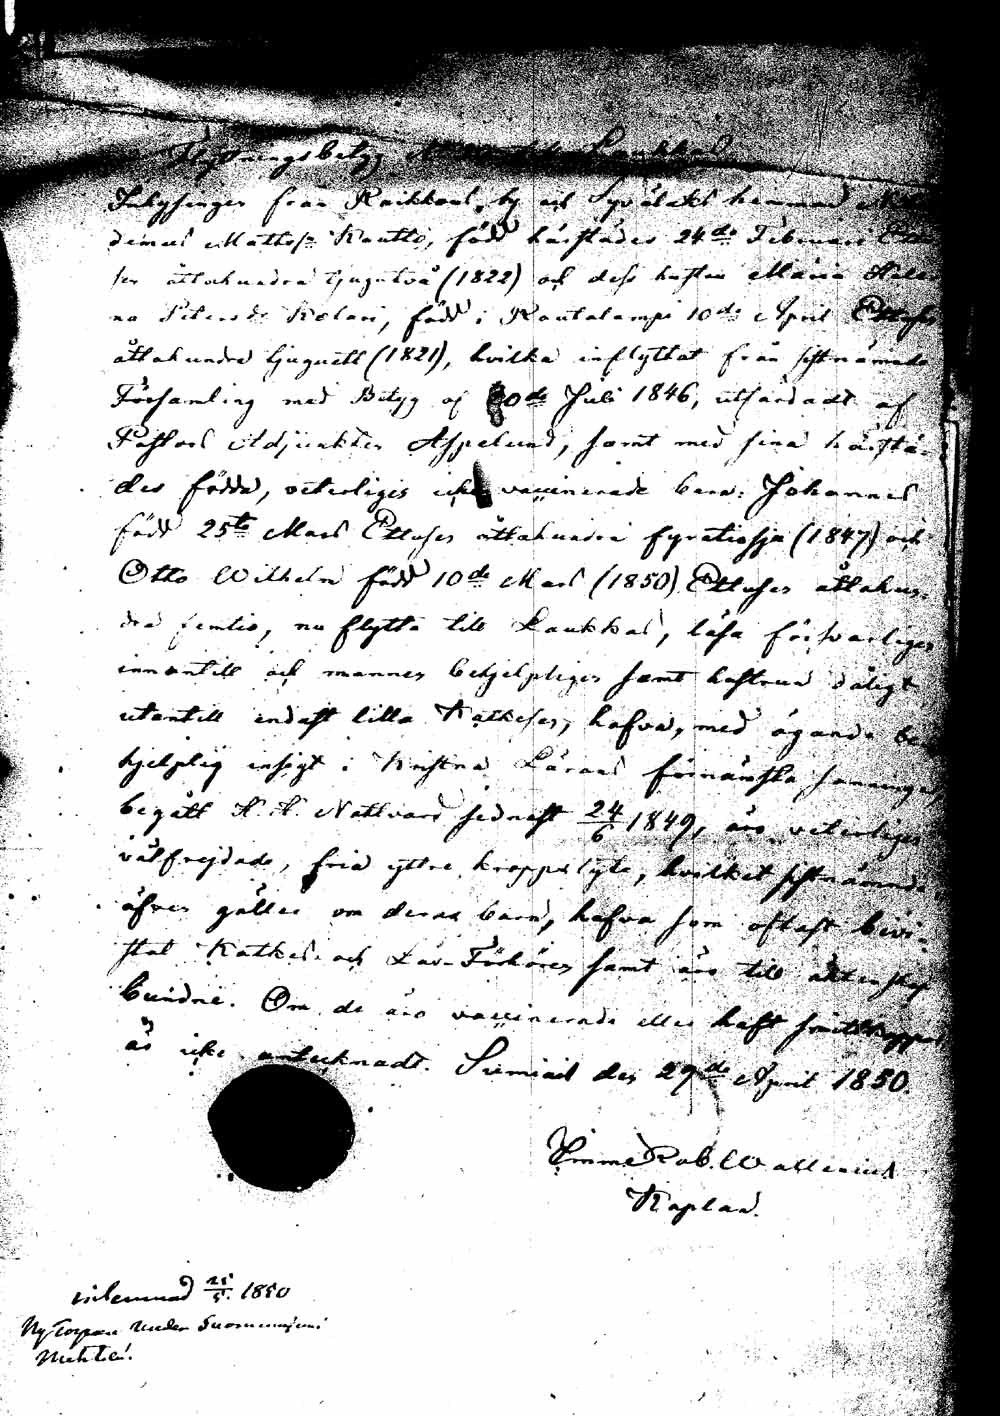 Flyttningsbetyg Laukkas
Inhysingen från Raikkaus by och Syvälaks hemman
demus Mattss. Kautto, född härstädes 24de Februari Ettu-
sen åttahundra tjugutvå (1822) och dess hustru Maria Hele-
na Petersd. Kolari, född i Rautalampi 10de April Ettusen
åttahundra tjuguett (1821), hvilka inflyttat från sistnämnde
Församling med Betyg af 20de Juli 1846, utfärdadt af
Pastors Adjunkten Aspelund, samt med sina härstä-
des födda, veterligen icke vaccinerade barn: Johannes
född 25te Mars Ettusen åttahundra fyratiosju (1847) och
Otto Wilhelm född 10de Mars (1850) Ettusen åttahun-
dra femtio, nu flytta till Laukkas, läsa försvarligen
innantill och mannen behjelpligen samt hustrun dåligt
utantill endast lilla Kathesen, hafva, med ägande be-
hjelplig insigt i Kristna Lärans förnämsta sanningar,
begått H. H. Nattvard sednast 24/6 1849, äro veterligen
välfrejdade, fria yttre kroppslyte, hvilket sistnämnde
äfven gäller om deras barn, hafva som oftast bevi-
stat Katkes- och Läs-Förhören samt äro till äktenskap
bundne. Om de äro vaccinerade eller haft smittkoppor
är icke antecknadt. Sumiais den 29de April 1850.
Rob. Wallenius
Kaplan.
inlemnad 25/5. 1850
Ny Torpare under Suomenniemi